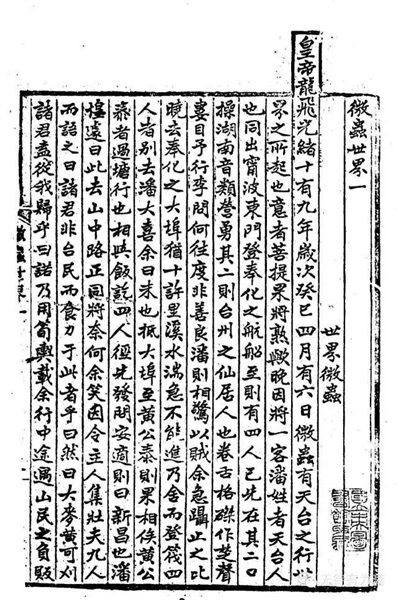 微蟲世界一
世界微蟲
皇帝龍飛光緒十有九年歲次癸巳四月有六日微蟲有天台之行此
界之所起也意者菩提果將熟歟晚因將一客潘姓者天台人
也同出甯波東門登奉化之航船至則有四人已先在其二口
操湖南音類營勇其二則台州之仙居人也卷舌格磔作蛩聲
婁目予行李問何往度非善良潘則相驚以賊余急躡止之比
曉去奉化之大埠猶十許里溪水湍急不能進乃舍而登筏四
人者別去潘大喜余曰未也抵大埠至黃公泰則果相俟黃公
泰者過塘行也相與飯訖四人徑先發問安適則曰新昌也潘
惶遽曰此去山中路正同將奈何余笑因令主人集壯夫九人
而詒之曰諸君非台民而食力于此者乎曰然曰大麥黃可刈
諸君盍從我歸乎曰諾乃用筍輿載余行中途遇山民之負販